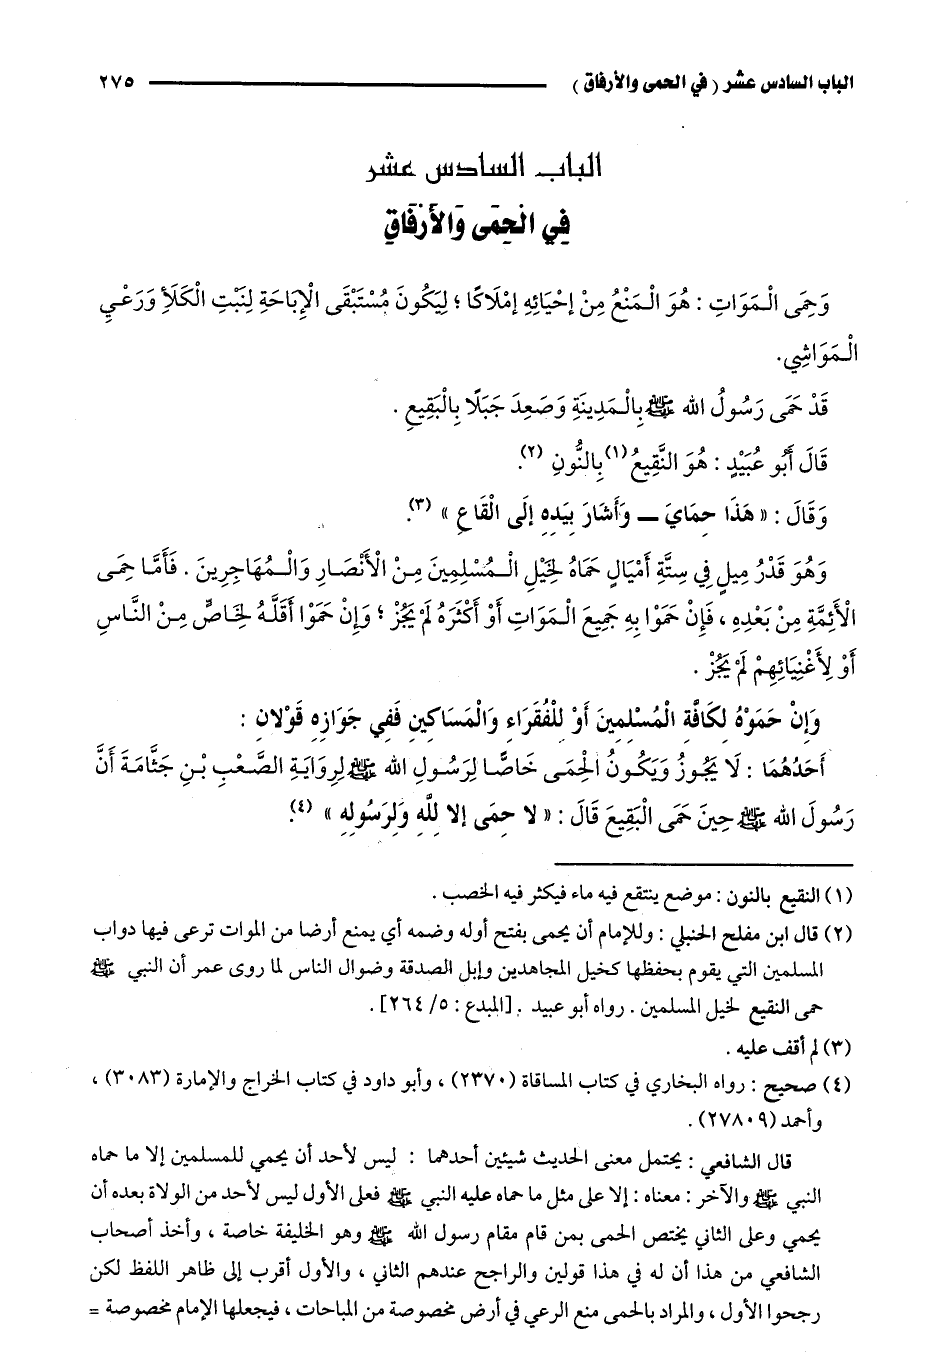 الباب السادس عشر ( في الحمى والأرفاق ) ٢٧٥
الباب السادس عشر
فِي الْحِمَى وَالأَرْفَاقِ
وَحِمَى الْمَوَاتِ : هُوَ الْمَنْعُ مِنْ إحْيَائِهِ إمْلَاكًا ؛ لِيَكُونَ مُسْتَبْقَى الْإِبَاحَةِ لِنَبْتِ الْكَلَأِ وَرَعْيِ
الْمَوَاشِي.
قَدْ حَمَى رَسُولُ الله ﷺ بِالْمَدِينَةِ وَصَعِدَ جَبَلًا بِالْبَقِيعِ .
قَالَ أَبُو عُبَيْدٍ : هُوَ النَّقِيعُ (١) بِالنُّونِ (٢).
وَقَالَ : « هَذَا حِمَايَ ــ وَأَشَارَ بِيَدِهِ إلَى الْقَاعِ » (٣).
وَهُوَ قَدْرُ مِيلٍ فِي سِتَّةِ أَمْيَالٍ حَمَاهُ لِخَيْلِ الْمُسْلِمِينَ مِنْ الْأَنْصَارِ وَالْمُهَاجِرِينَ . فَأَمَّا حِمَى
الْأَئِمَّةِ مِنْ بَعْدِهِ ، فَإِنْ حَمَوْا بِهِ جَمِيعَ الْمَوَاتِ أَوْ أَكْثَرَهُ لَمْ يَجُزْ ؛ وَإِنْ حَمَوْا أَقَلَّهُ لِخَاصٍّ مِنْ النَّاسِ
أَوْ لِأَغْنِيَائِهِمْ لَمْ يَجُزْ .
وَإِنْ حَمَوْهُ لِكَافَّةِ الْمُسْلِمِينَ أَوْ لِلْفُقَرَاءِ وَالْمَسَاكِينِ فَفِي جَوَازِهِ قَوْلَانِ :
أَحَدُهُمَا : لَا يَجُوزُ وَيَكُونُ الْحِمَى خَاصًّا لِرَسُولِ الله ﷺ لِرِوَايَةِ الصَّعْبِ بْنِ جَثَّامَةَ أَنَّ
رَسُولَ الله ﷺ حِينَ حَمَى الْبَقِيعَ قَالَ : « لا حِمَى إلا لِلَّهِ وَلِرَسُولِهِ » (٤).
(١) النقيع بالنون : موضع ينتقع فيه ماء فيكثر فيه الخصب .
(٢) قال ابن مفلح الحنبلي : وللإمام أن يحمى بفتح أوله وضمه أي يمنع أرضا من الموات ترعى فيها دواب
المسلمين التي يقوم بحفظها كخيل المجاهدين وإبل الصدقة وضوال الناس لما روى عمر أن النبي ﷺ
حمى النقيع لخيل المسلمين . رواه أبو عبيد . [المبدع : ٥/ ٢٦٤] .
(٣) لم أقف عليه .
(٤) صحيح : رواه البخاري في كتاب المساقاة (٢٣٧٠) ، وأبو داود في كتاب الخراج والإمارة (٣٠٨٣) ،
وأحمد (٢٧٨٠٩) .
قال الشافعي : يحتمل معنى الحديث شيئين أحدهما : ليس لأحد أن يحمي للمسلمين إلا ما حماه
النبي ﷺ والآخر : معناه : إلا على مثل ما حماه عليه النبي ﷺ فعلى الأول ليس لأحد من الولاة بعده أن
يحمي وعلى الثاني يختص الحمى بمن قام مقام رسول الله ﷺ وهو الخليفة خاصة ، وأخذ أصحاب
الشافعي من هذا أن له في هذا قولين والراجح عندهم الثاني ، والأول أقرب إلى ظاهر اللفظ لكن
رجحوا الأول ، والمراد بالحمى منع الرعي في أرض مخصوصة من المباحات ، فيجعلها الإمام مخصوصة =